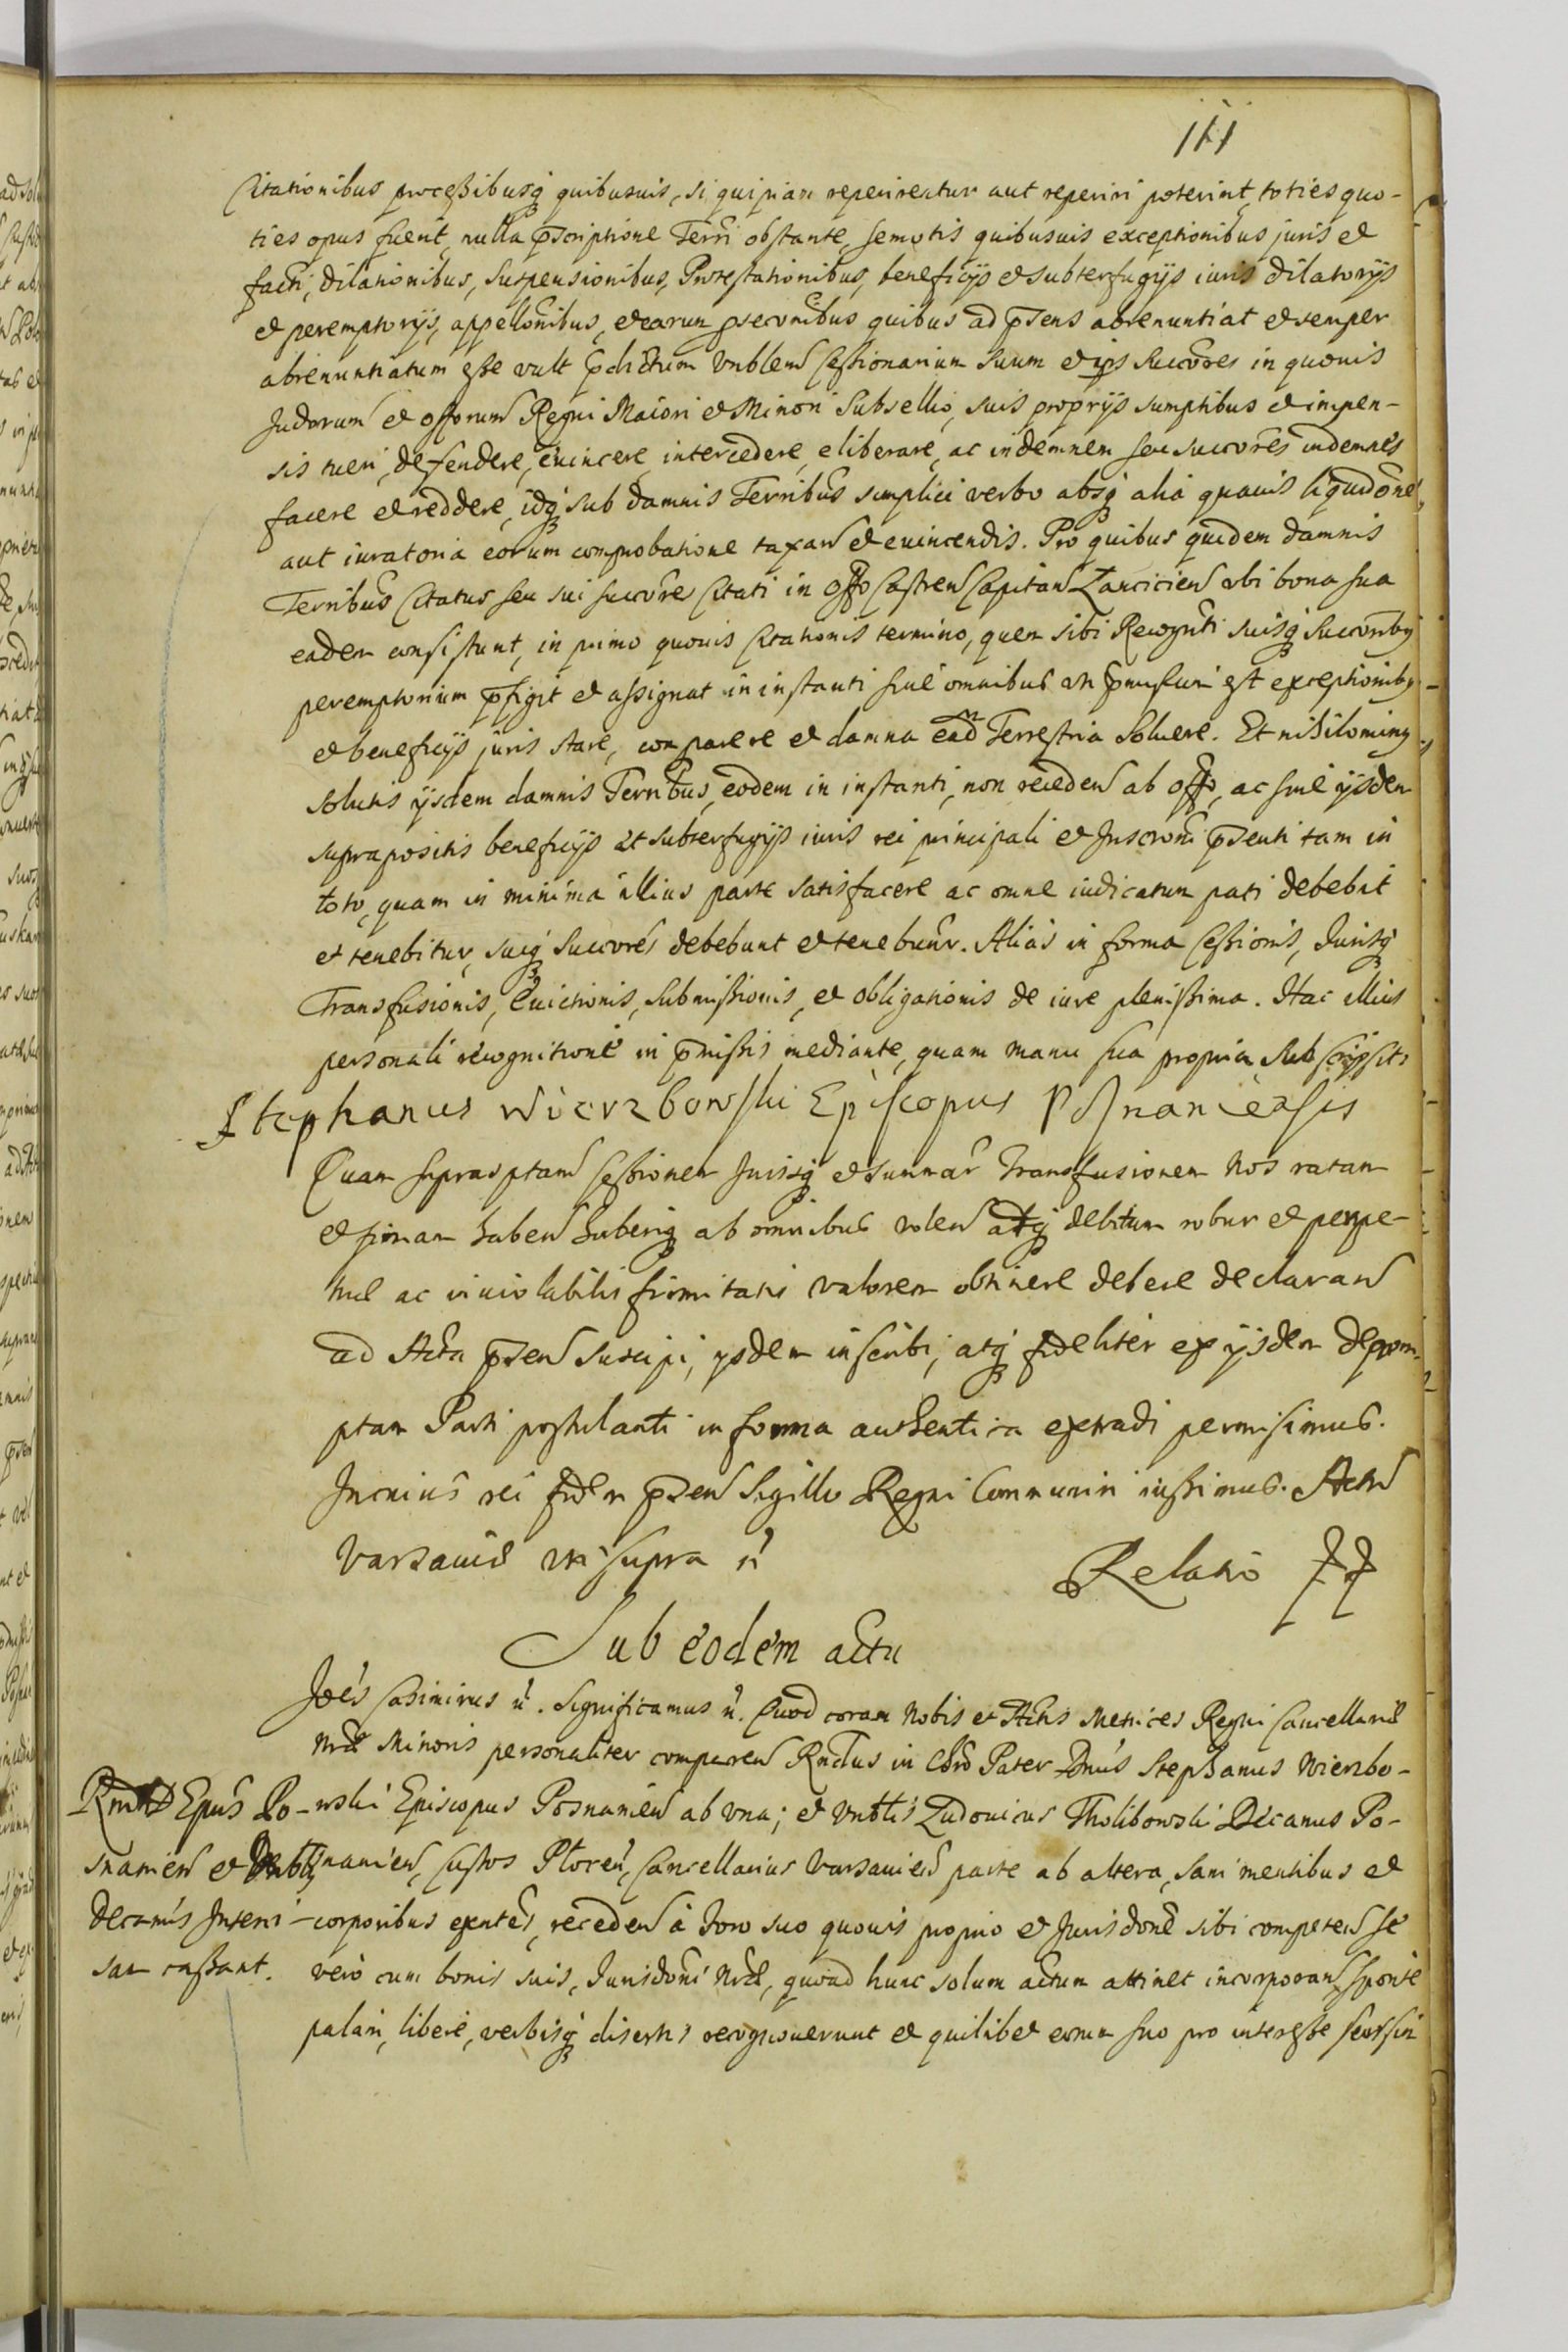 111
Citationibus processibusq quibusuis, si quipiam reperirentur aut reperiri poterint, toties quo-
ties opus fuerit, nulla pscriptione Terri obstante, semotis quibusuis exceptionibus juris et
facti, dilationibus, suspensionibus, Protestationibus, beneficijs et subterfugijs iuris dilatorijs
et peremptorijs, appellonibus, et earum psecunibus quibus ad psens abrenuntiat et semper
abrenuntiatum esse vult pdictum Vnblem Cessionarium suum et ejs succores in quouis
Judorum et offorum Regni Maiori et Minori Subsellio, suis proprijs sumptibus et impen-
sis tueri, defendere, euincere, intercedere, eliberare, ac indemnem seu succores indemnes
facere et reddere, idq sub damnis Terribus simplici verbo absq alia quauis liquidone,
aut iuratoria eorum comprobatione taxan et euincendis. Pro quibus quidem damnis
Terribus Citatus seu sui succores Citati in Offo Castren Capitan Lancicien vbi bona sua
eadem consistunt, in primo quouis Citationis termino, quem sibi Recognti suisq succoriby
peremptorium pfigit et assignat in instanti sine omnibus vti pmissum est exceptioniby
et beneficijs juris stare, comparere et damna ead Terrestria soluere. Et nihilominy
solutis ijsdem damnis Terribus, eodem in instanti, non receden ab offo, ac sine ijsdem
suprapositis beneficijs et subterfugijs iuris rei principali et Inscroni psenti tam in
toto, quam in minima illius parte satisfacere ac omne iudicatum pati debebit
et tenebitur, suiq succores debebunt et tenebuntr. Alias in forma Cessionis, Jurisq
Transfusionis, Euictionis, submissionis, et obligationis de iure plenissima. Hac illius
personali recognitione in pmissis mediante, quam manu sua propria subscripsit
Stephanus Wierzbowski Episcopus Posnaniensis
Quam suprasptam Cessionem Jurisq et summar Transfusionem Nos ratam
et firmam haben haberiq ab omnibus volen atq debitum robur et perpe-
tuae ac inuiolabilis firmitatis valorem obtinere debere declaran
ad Acta psen suscipi, ijsdem inscribi, atq fideliter ex ijsdem deprom-
ptam Parti postulanti in forma authentica extradi permisimus.
In cuius rei fidem psen Sigillo Regni Communiri iussimus. Actu
Varsauiae vti supra
Relatio
Sub eodem actu
Joes Casimirus . Significamus . Quod coram Nobis et Actis Metrices Regni Cancellariae
Nrae Minoris personaliter comparen Rndus in Chro Pater Dnus Stephanus Wierzbo-
Rmi D Epus Po- wski Episcopus Posnanien ab vna; et Vnblis Ludouicus Tholibowski Decanus Po-
snanien et Vnblis snanien, Custos Plocen, Cancellarius Varsauien parte ab altera, sani mentibus et
Decanus Inscri- corporibus exntes, receden à Foro suo quouis proprio et Jurisdone sibi competen se
san cassant. vero cum bonis suis, Jurisdoni Nrae, quoad hunc solum actum attinet incorporan, sponte
palam, libere, verbisq disertis recognouerunt et quilibet eorum suo pro interesse seorsim